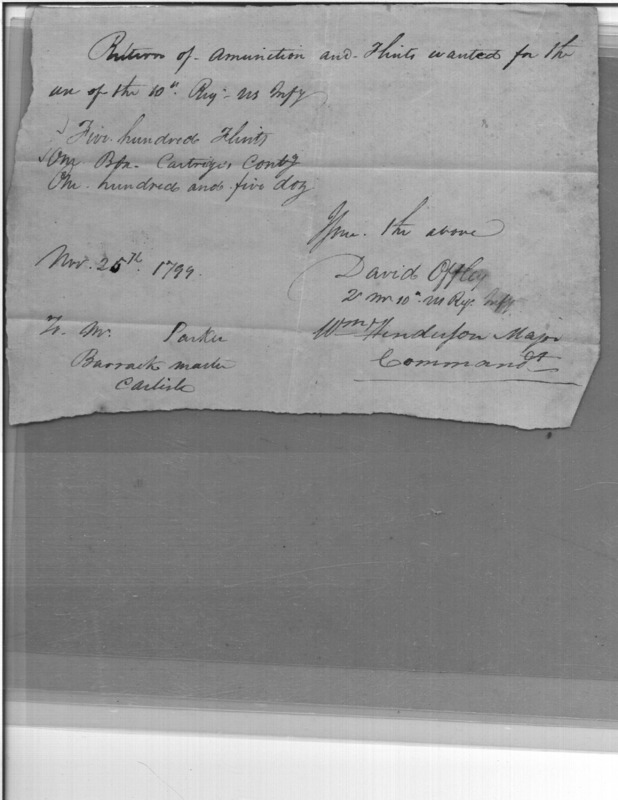 Return of Amunition and Flints wanted for the
use of the 10th Regt US Infy
Five hundred Flints
One Box Cartriges Contg
One hundred and five doz
Issue the above
Nov. 25th 1799.
David Offley
Q M 10th US Regt Infy
To Mr. Parker
Wm Henderson Major
Barrack master
Commandt
Carlisle